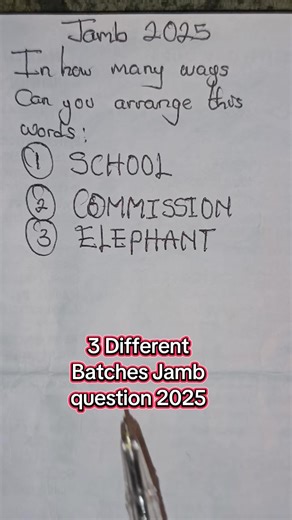 Jamb 2025
In how many ways
Can you arrange this
words:
① SCHOOL
② COMMISSION
③ ELEPHANT
3 Different
Batches Jamb
question 2025